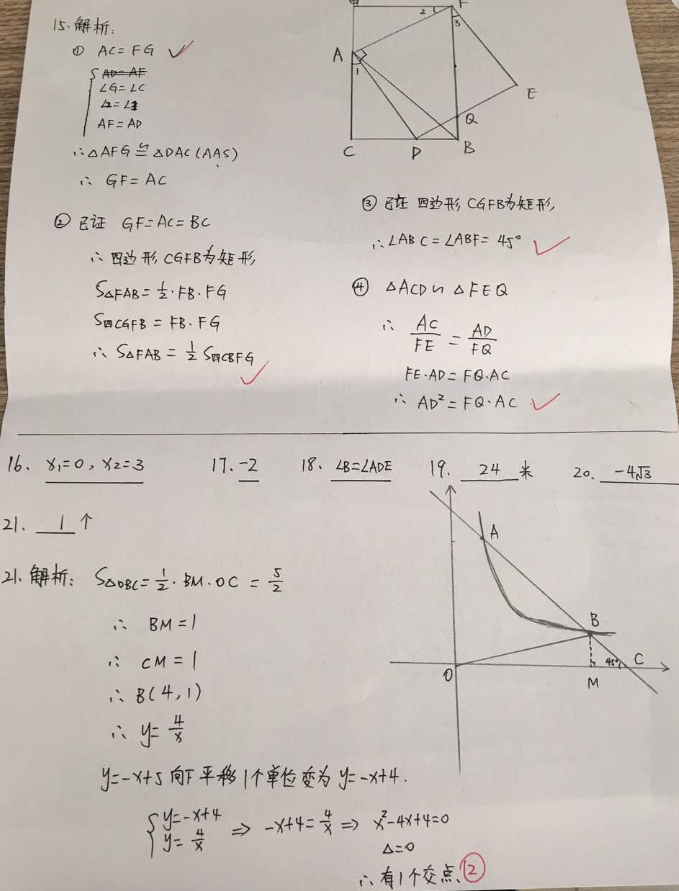 15. 解析:
① AC=FG ✓
AD=AF
∠G=∠C
∠2=∠1
AF=AD
∴△AFG≌△DAC(AAS)
∴ GF=AC
② 已证 GF=AC=BC
∴ 四边形CGFB为矩形,
S△FAB=1/2·FB·FG
S四CGFB=FB·FG
∴ S△FAB=1/2 S四CBFG ✓
F
2
1
3
A
1
E
Q
C D B
③ 已证 四边形CGFB为矩形,
∴∠ABC=∠ABF=45° ✓
④ △ACD∽△FEQ
∴ AC/FE = AD/FQ
FE·AD=FQ·AC
∴ AD²=FQ·AC ✓
16. x₁=0, x₂=3 17. -2 18. ∠B=∠ADE 19. 24 米 20. -4√3
21. 1 个
21. 解析: S△OBC=1/2·BM·OC=5/2
∴ BM=1
∴ CM=1
∴ B(4,1)
∴ y=4/x
y=-x+5向下平移1个单位变为y=-x+4.
{y=-x+4
y=4/x ⇒ -x+4=4/x ⇒ x²-4x+4=0
△=0
∴有1个交点. ②
A
B
O
45°
C
M